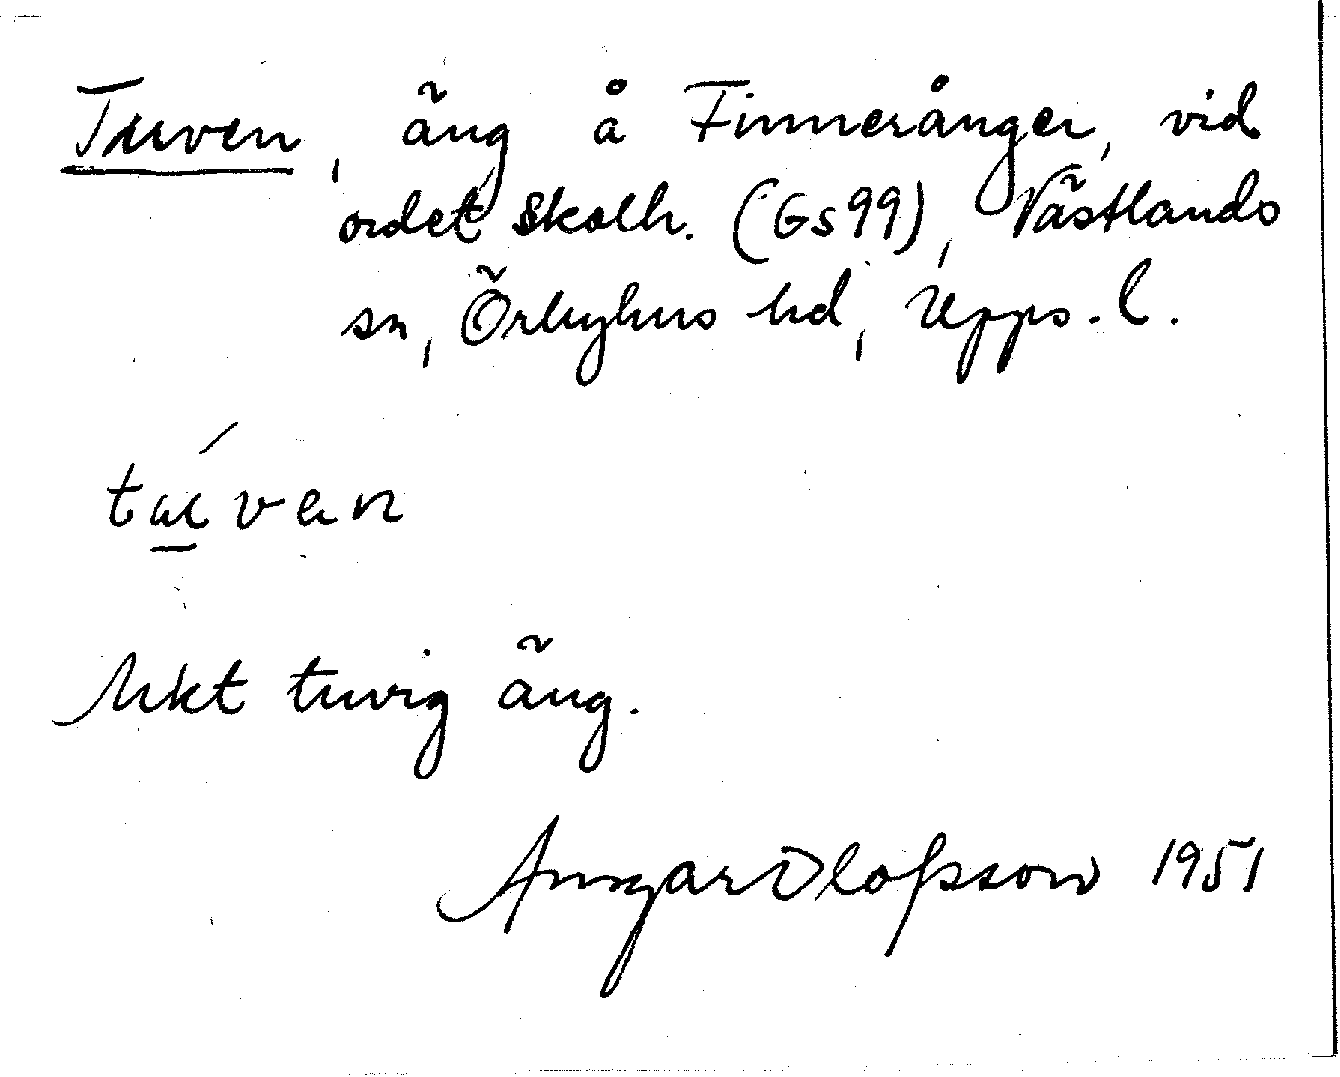 Tuven, äng å Finneränger, vid
ordet Skolh. (Gs 99), Västlands
sn, Örbyhus hd, Upps. l.
túven
Mkt tuvig äng.
Ansgar Olofsson 1951